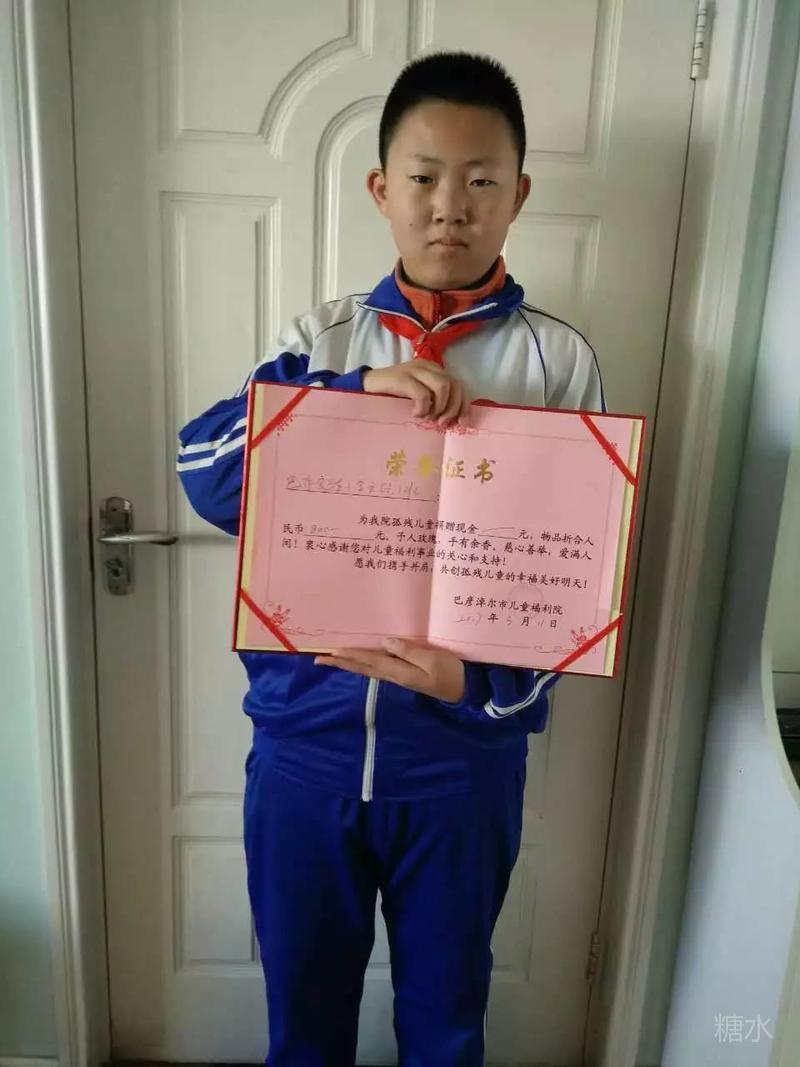 荣誉证书
为我院孤残儿童捐赠现金 元，物品折合人
民币 300 元。予人玫瑰，手有余香。慈心善举，爱满人
间！衷心感谢您对儿童福利事业的关心和支持！
愿我们携手并肩，共创孤残儿童的幸福美好明天！
巴彦淖尔市儿童福利院
2017 年 3 月 11 日
糖水